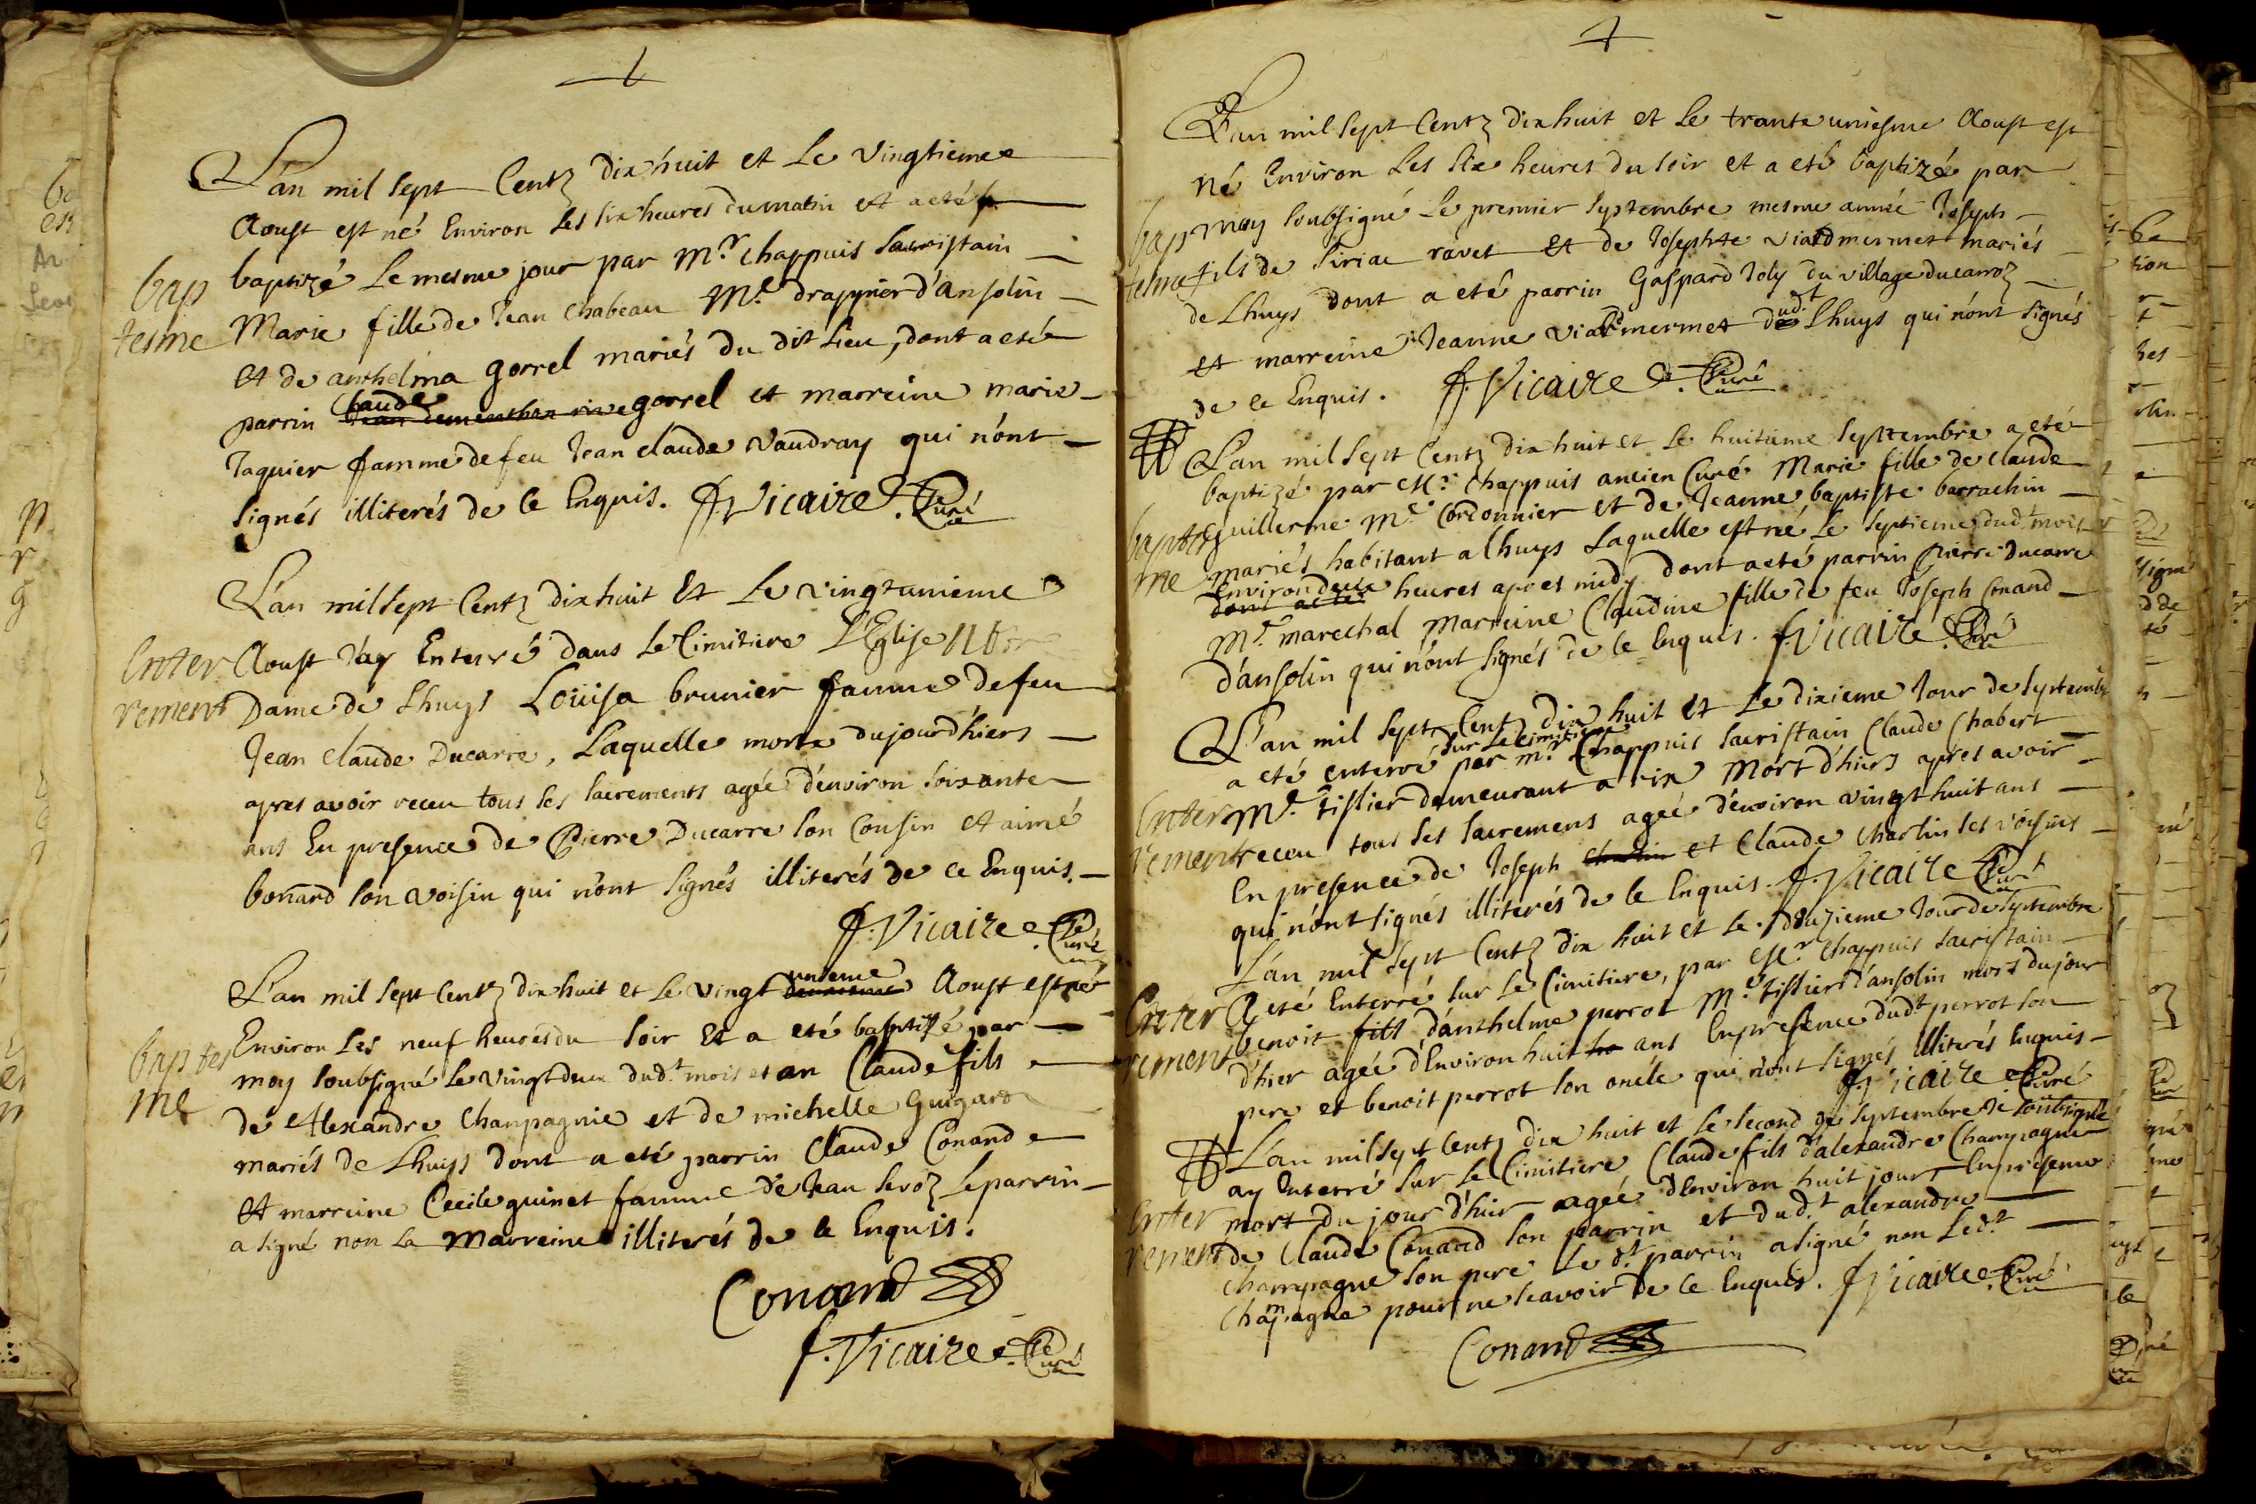 L'an mil sept Centz dix huit et Le vingtieme
Aoust est né Environ Les six heures du matin et a eté
bap baptizé Le mesme jour par Mr. Chappuis Sacristain
tesme Marie fille de Jean Chabeau Me. drappier d'ansolin
et de anthelma gorrel mariés du dit Lieu, dont a eté
parrin Claude gorrel et marreine marie
Jaquier famme de feu Jean claude vaudray qui n'ont
signés illiterés de ce Enquis. f. Vicaire Curé
L'an mil sept Centz dix huit Et Le vingtunieme
Enter Aoust J'ay Enterré dans Le Cimitiere L'Eglise
rement Dame de Lhuys Loüisa brunier famme de feu
Jean Claude Ducarre, Laquelle morte du jourd'hiers
apres avoir receu tous ses sacrements agée d'environ soixante
ans En presence de Pierre Ducarre son Cousin et aimé
bonard son voisin qui n'ont signés illiterés de ce Enquis.
f. Vicaire Curé
unieme
L'an mil sept Centz dix huit et Le vingt deuxieme Aoust est né
Environ Les neuf heures du soir Et a eté baptizé par
baptes moy soubsigné Le vingtdeux dud.t mois et an Claude fils
me de Alexandre Champagnie et de michelle Guigard
mariés de Lhuys dont a eté parrin Claude Conand
et marreine Cecile guinet famme de Jean seroz Le parrin
a signé non La marreine illiterés de ce Enquis.
Conand
f. Vicaire Curé
L'an mil sept Centz dix huit et Le trante uniesme Aoust est
né Environ Les six heures du soir et a eté baptizé par
bap moy soubsigné Le premier septembre mesme année Joseph
tesme fils de Siriac ravet et de Josephte viard mermet mariés
de Lhuys dont a eté parrin Gaspard Joly du village ducarroz
et marreine Jeanne viard mermet dud.t Lhuys qui n'ont signés
de ce Enquis. f. Vicaire Curé
L'an mil sept Centz dix huit et Le huitieme septembre a eté
baptizé par Mr. Chappuis ancien Curé Marie fille de Claude
baptes guillerme Me. Cordonnier et de Jeanne baptiste barrachin
me mariés habitant a Lhuys Laquelle est né Le septieme dud.t mois
Environ deux heures apres midy dont a eté parrin Pierre Ducarre
Me. marechal Marreine Claudine fille de feu Joseph Conand
d'ansolin qui n'ont signés de ce Enquis. f. Vicaire Curé
L'an mil sept Centz dix huit et Le dixieme Jour de septembre
sur Le cimitiere
a eté enterré par Mr. Chappuis sacristain Claude Chabert
Enter Me. tissier demeurant a rix Mort d'hiers apres avoir
rement receu tous ses sacremens agée d'environ vingt huit ans
En presence de Joseph et Claude Charlin ses voisins
qui n'ont signés illiterés de ce Enquis. f. Vicaire Curé
L'an mil sept Centz dix huit et Le douzieme Jour de septembre
Enter A eté Enterré sur Le Cimitiere, par Mr. Chappuis sacristain
rement benoit fils d'anthelme perrot Me. tissier d'ansolin mort du jour
d'hier agée d'Environ huit ans En presence dud.t perrot son
pere et benoit perrot son oncle qui n'ont signés illiterés Enquis
f. Vicaire Curé
L'an mil sept Centz dix huit et Le second de septembre Je soubsigné
ay Enterré sur Le Cimitiere Claude fils d'alexandre Champagne
Enter mort du jour d'hier agée d'Environ huit jours En presence
rement de Claude Conand son parrin et dud.t alexandre
Champagne son pere Le d.t parrin a signé non Led.t
Champagne pour ne scavoir de ce Enquis. f. Vicaire Curé
Conand